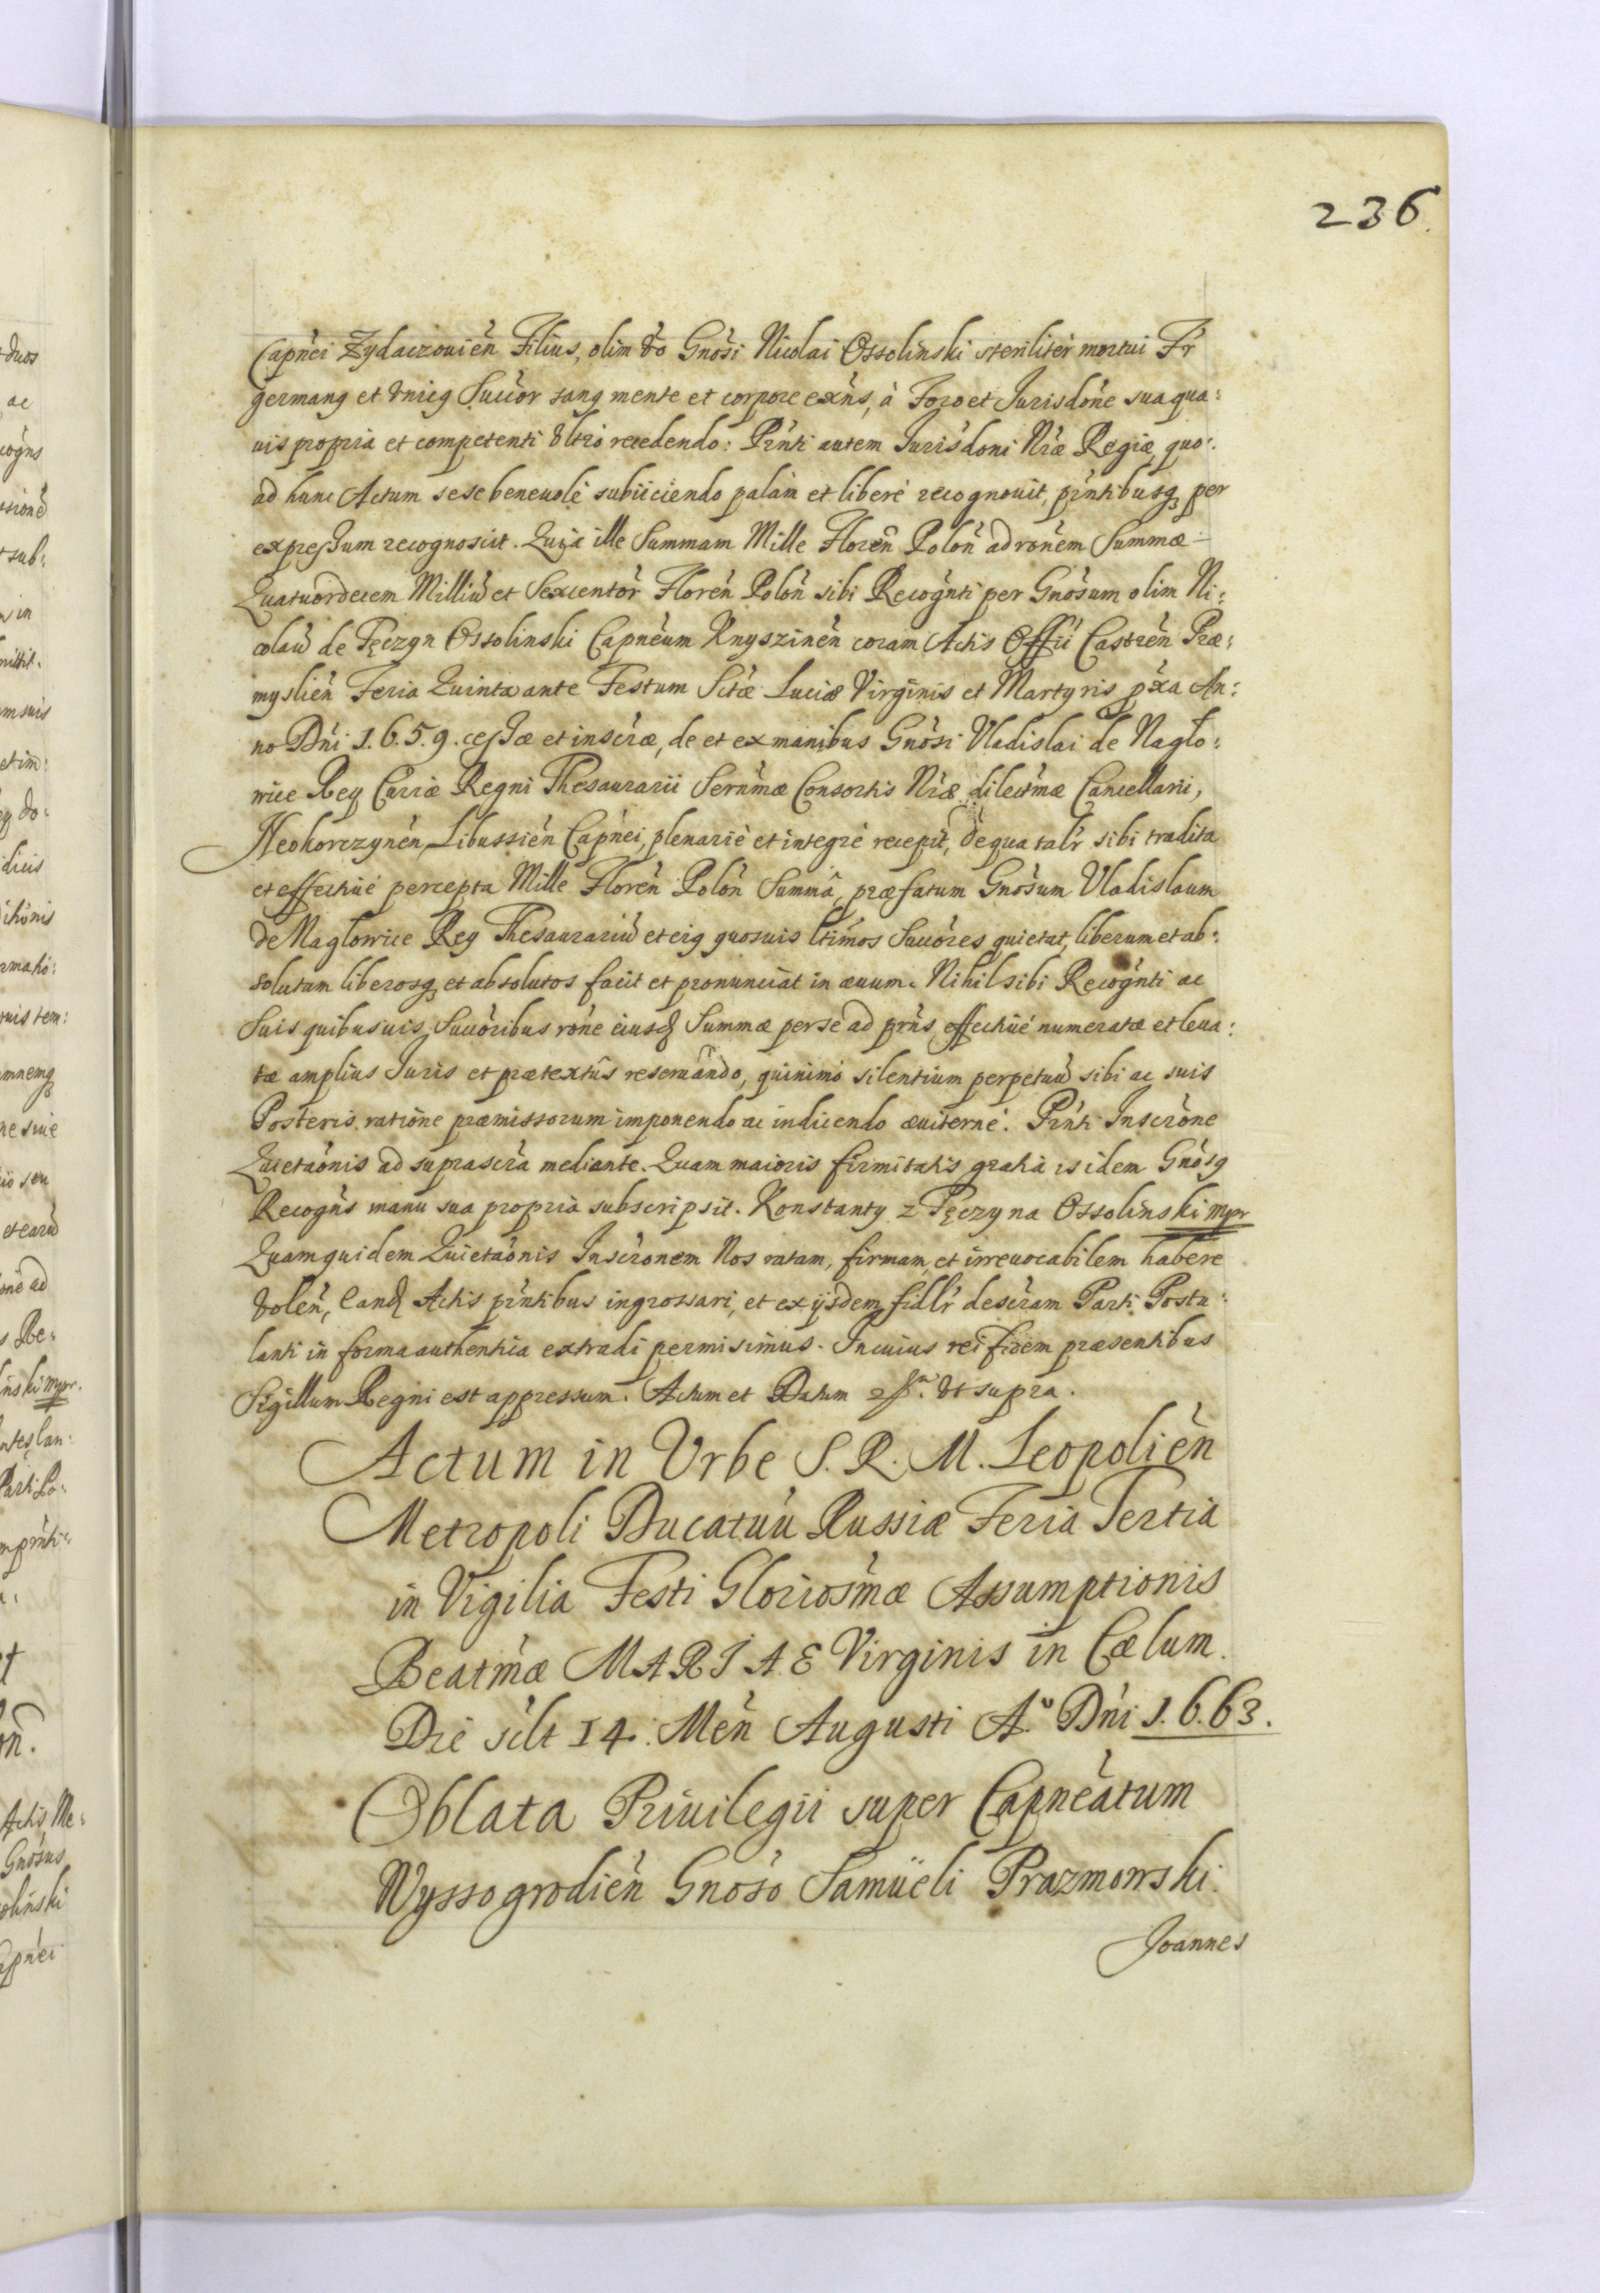 236.
Capnei Zydaczouien Filius, olim vo Gnosi Nicolai Ossolinski steriliter mortui Fr
germang et vnicg Succor sang mente et corpore exns, à Foro et Jurisdone sua qua:
uis propria et competenti vltro recedendo: Pnti autem Jurisdoni Nrae Regiae, quo:
ad hunc Actum sese beneuole subiiciendo palàm et liberè recognouit, pntibusq per
expressum recognoscit. Quia ille Summam Mille Floren Polon ad ronem Summae
Quatuordecem Milliu et Sexcentor Floren Polon sibi Recognti per Gnosum olim Ni:
colau de Tęczyn Ossolinski Capneum Knyszinen coram Actis Offii Castren Prae:
myslien Feria Quinta ante Festum Sctae Luciae Virginis et Martyris pxa An:
no Dni 1.6.5.9. cessae et inscrae, de et ex manibus Gnosi Vladislai de Nagło:
wice Rey Curiae Regni Thesaurarii Sernmae Consortis Nrae dilectmae Cancellarii,
Neokorczynen, Libussien Capnei, plenariè et integrè recepit, de qua talr sibi tradita
et effectiuè percepta Mille Floren Polon Summâ, praefatum Gnosum Vladislaum
de Nagłowice Rey Thesaurariu et eig quosuis ltimos Succores quietat, liberum et ab:
solutum liberosq et absolutos facit et pronunciat in aeuum. Nihil sibi Recognti ac
Suis quibusuis Succoribus rone eiusd Summae per se ad prns effectiuè numeratae et leua:
tae amplius Juris et praetextûs reseruando, quinimò silentium perpetuu sibi ac suis
Posteris ratione praemissorum imponendo ac indicendo aeuiternè. Pnti Inscrone
Quietaonis ad suprascra mediante. Quam maioris firmitatis gratia is idem Gnosg
Recogns manu sua propria subscripsit. Konstanty z Tęczyna Ossolinski mpr
Quam quidem Quietaonis Inscronem Nos ratam, firmam, et irreuocabilem habere
volen, eand Actis pntibus ingrossari, et ex ijsdem fidlr descram Parti Postu:
lanti in forma authentica extradi permisimus. In cuius rei fidem praesentibus
Sigillum Regni est appressum. Actum et Datum vt supra.
Actum in Vrbe S. R. M. Leopolien
Metropoli Ducatuu Russiae Feria Tertia
in Vigilia Festi Gloriosmae Assumptionis
Beatmae MARIAE Virginis in Caelum.
Die silt 14. Men Augusti A.o Dni 1.6.63.
Oblata Priuilegii super Capneatum
Wyssogrodien Gnoso Samueli Prazmowski.
Joannes